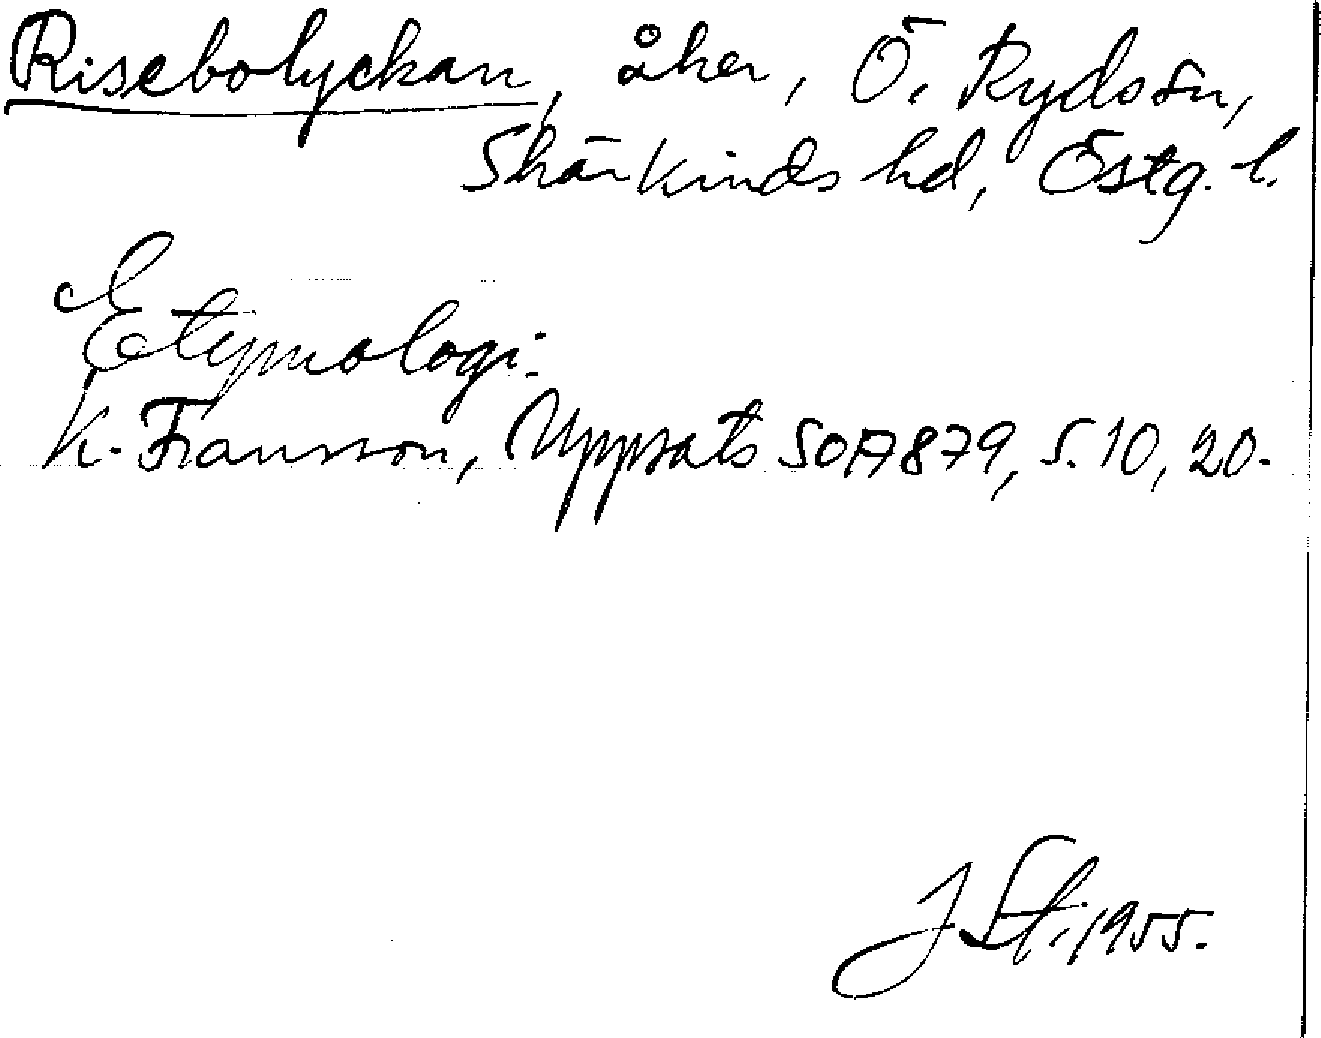 Risebolyckan, åker, Ö. Ryds sn,
Skärkinds hd, Östg. l.
Etymologi.
K. Fransson, Uppsats SOA 879, s. 10, 20.
J St. 1955.